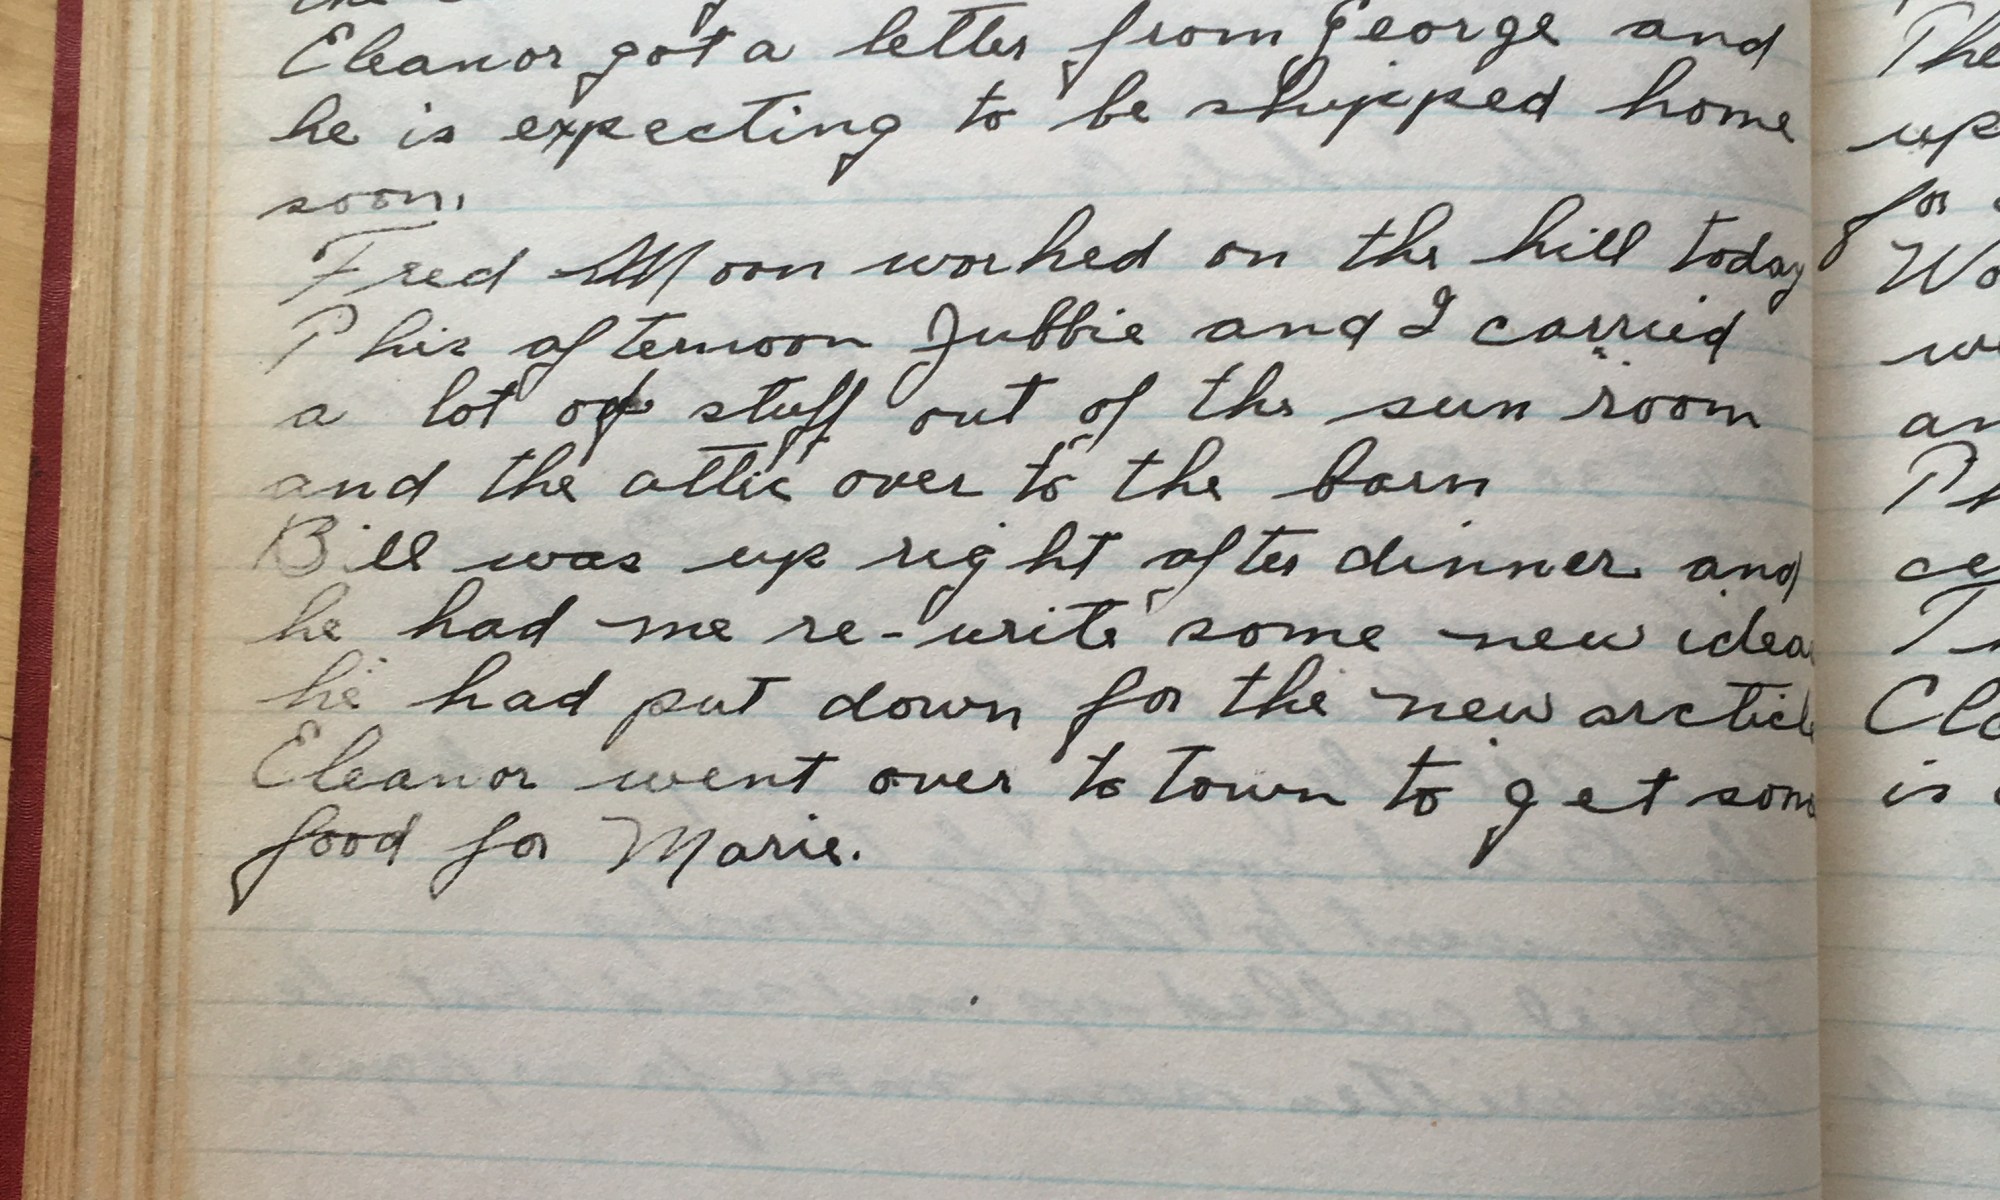 the
Eleanor got a letter from George and
he is expecting to be shipped home
soon.
Fred Moon worked on the hill today
This afternoon Jubbie and I carried
a lot of stuff out of the sun room
and the attic over to the barn
Bill was up right after dinner and
he had me re-write some new idea
he had put down for the new arcticl
Eleanor went over to town to get som
food for Marie.
The
up
for
Wo
we
an
Th
ce
Cla
is